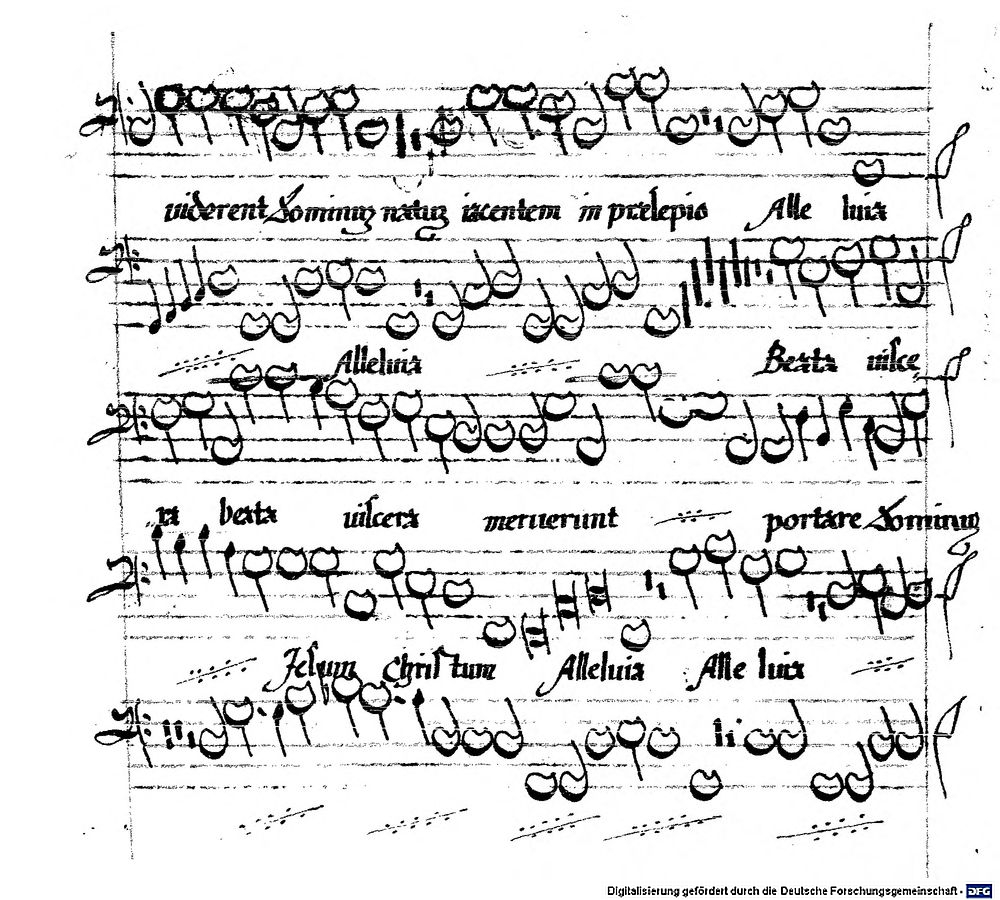 viderent Dominum natum iacentem in presepio Alle luia
Alleluia Beata visce
ra beata viscera meruerunt portare Dominum
Jesum Christum Alleluia Alle luia
Digitalisierung gefördert durch die Deutsche Forschungsgemeinschaft - DFG